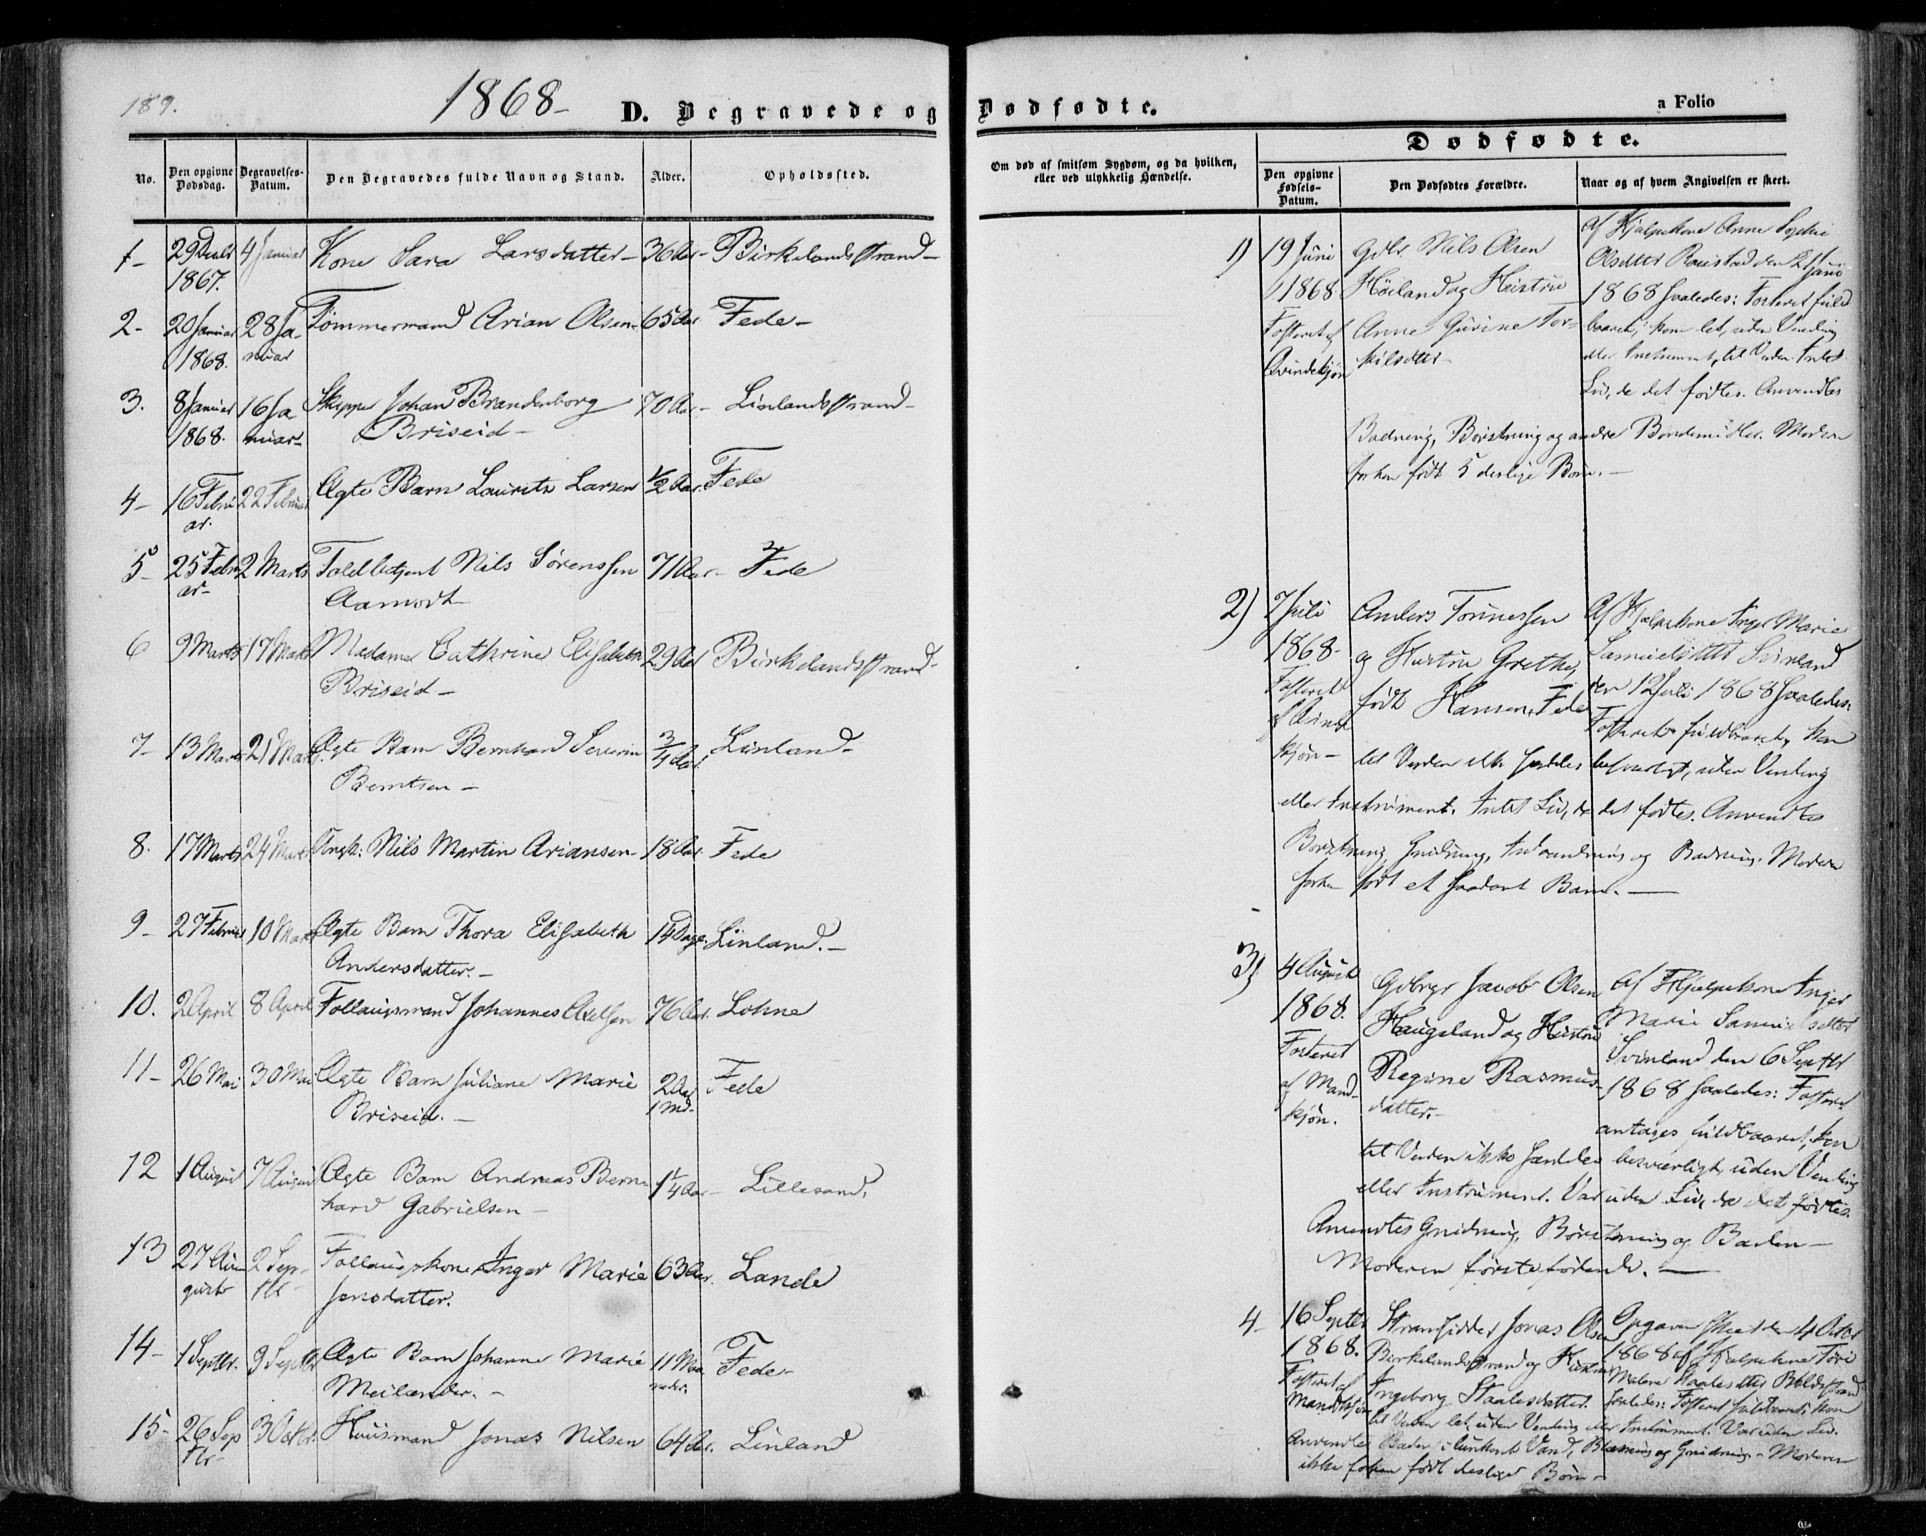 189.
1868-
D. Begravede og Dødfødte.
a Folio
No.
Den opgivne Dødsdag.
Begravelses-Datum.
Den Begravedes fulde Navn og Stand.
Alder.
Opholdssted.
Om død af smitsom Sygdom, og da hvilken,
eller ved ulykkelig Hændelse.
Dødfødte.
Den opgivne Fødsels-Datum.
Den Dødfødtes Forældre.
Naar og af hvem Angivelsen er skeet.
1- 29 Decbr 1867. 4 Januar Kone Sara Larsdatter- 36 Aar- Birkelandsstrand-
2- 20 Januar 1868. 28 Januar Tømmermand Arian Olsen- 65 Aar Fede-
3. 8 Januar 1868. 16 Januar- Skipper Johan Brandenborg 70 Aar- Linlandsstrand-
Briseid-
4- 16 Februar. 22 Februar Ægte Barn Laurits Larsen 1/2 Aar. Fede
5- 25 Februar- 2 Marts Toldbetjent Nils Sørenssen 71 Aar- Fede
Aamodt
6 9 Marts 17 Marts Madame Cathrine Elisabeth 29 Aar Birkelandsstrand-
Briseid-
7- 13 Marts 21 Marts Ægte Barn Bernhard Severin 3/4 Aar. Linland-
Berntsen-
8. 17 Marts 24 Marts Ungk: Nils Martin Ariansen- 18 Aar. Fede
9- 27 Februar 10 Marts Ægte Barn Thora Elisabeth 14 Dage Linland.-
Andersdatter.-
10. 2 April 8 April Follaugsmand Johannes Axelsen 76 Aar. Lohne
11- 26 Mai 30 Mai Ægte Barn Juliane Marie 2 Aar 1 Md- Fede
Briseid.-
12 1 August 7 August Ægte Barn Andreas Bern- 1 1/4 Aar- Lillesand.
hard Gabrielsen-
13 27 August 2 Septbr Follaugskone Inger Marie 63 Aar. Lande
Jensdatter.
14- 1 Septbr. 9 Septbr Ægte Barn Johanne Marie 11 Maaneder. Fede-
Meilænder.-
15- 26 Septbr- 3 Octbr. Huusmand Jonas Nilsen 64 Aar. Linland
1) 19 Juni 1868 Fosteret af Qvindekjøn
Gdbr. Nils Olsen
Høiland og Hustru
Anne Gurine Tor-
kilsdtter-
af Hjelpekone Anne Sophie
Olsdtter Raustad den 21 Juni
1868 saaledes: Fosteret fuld-
baaret, kom let, uden Vending
eller Instrument, til Verden. Intet
Liv, da det fødtes. Anvendtes
Badning, Børstning og andre Bondemidler. Moderen
forhen født 5 deslige Børn.-
2) 7 Juli 1868- Fosteret af Qvindekjøn-
Anders Tønnessen
og Hustru Grethe,
født Hansen, Fede
Af Hjelpekone Inger Marie
Samuelsdtter Svinland
den 12 Juli 1868 saaledes:
Fosteret fuldbaaret, kom
til Verden ikke særdeles besværligt, uden Vending
eller Instrument. Intet Liv, da det fødtes. Anvendtes
Børstning, Gnidning, Indaanding og Badning. Moderen
forhen født et saadant Barn.-
3) 4 August 1868. Fosteret af Mandkjøn.
Gdbrgr Jacob Olsen
Haugeland og Hustru
Regine Rasmus-
datter.-
af Hjelpekone Inger
Marie Samuelsdtter
Svinland den 6 Septbr
1868 saaledes: Fosteret
antages fuldbaaret, kom
til Verden ikke særdeles besværligt, uden Vending
eller Instrument. Var uden Liv, da det fødtes.
Anvendtes Gnidning, Børstning og Baden-
Moderen førstefødende.-
4- 16 Septbr 1868. Fosteret af Mandkjøn
Strandsidder Jonas Olsen
Birkelandsstrand og Hustru
Ingeborg Staalesdatter.
Opgaven skeet den 4 Octbr
1868 af Hjelpekone Tori
Malene Staalesdtter
saaledes: Fosteret fuldbaaret, kom
til Verden let, uden Vending eller Instrument. Var uden Liv.
Anvendtes Baden i lunkent Vand, Blæsning og Gnidning.- Moderen
ikke forhen født deslige Børn-